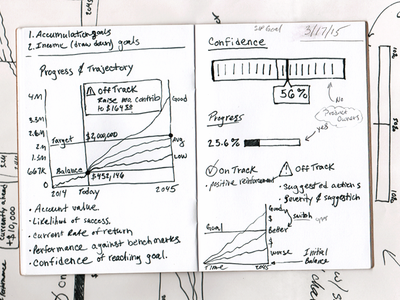 1. Accumulation goals
2. Income (draw down) goals
Progress & Trajectory
Off Track
Raise me contrib
to $164.50
Good
4M
3.3M
2.6M
2M
1.3M
667K
0
Target
$2,000,000
Avg
Low
Balance
$452,146
2014
Today
2045
• Account value
• Likelihood of success.
• Current Rate of return
• Performance against benchmarks
• Confidence of reaching goal.
3/17/15
Confidence
56%
No
Progress
yes
25.6%
On Track
• positive reinforcement
Off Track
• Suggested actions
• Severity & suggestion
Good
$
Better
$
worse
Goal
Initial
Balance
Time
2045
+$10,000